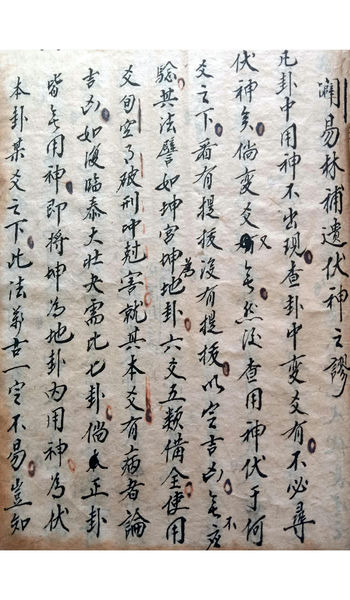 闢易林補遺伏神之謬
凡卦中用神不出現查卦中變爻有不必尋
伏神矣倘變爻又無然後查用神伏于何
爻之下看有提拔沒有提拔以定吉凶無不应
驗其法譬如坤宮坤為地卦六爻五類備全使用
爻旬空了破刑冲尅害就其本爻有病者論
吉凶如復臨泰大壯夬需比七卦倘正卦
皆無用神即將坤為地卦内用神為伏
本卦某爻之下此法萬古一定不易豈知